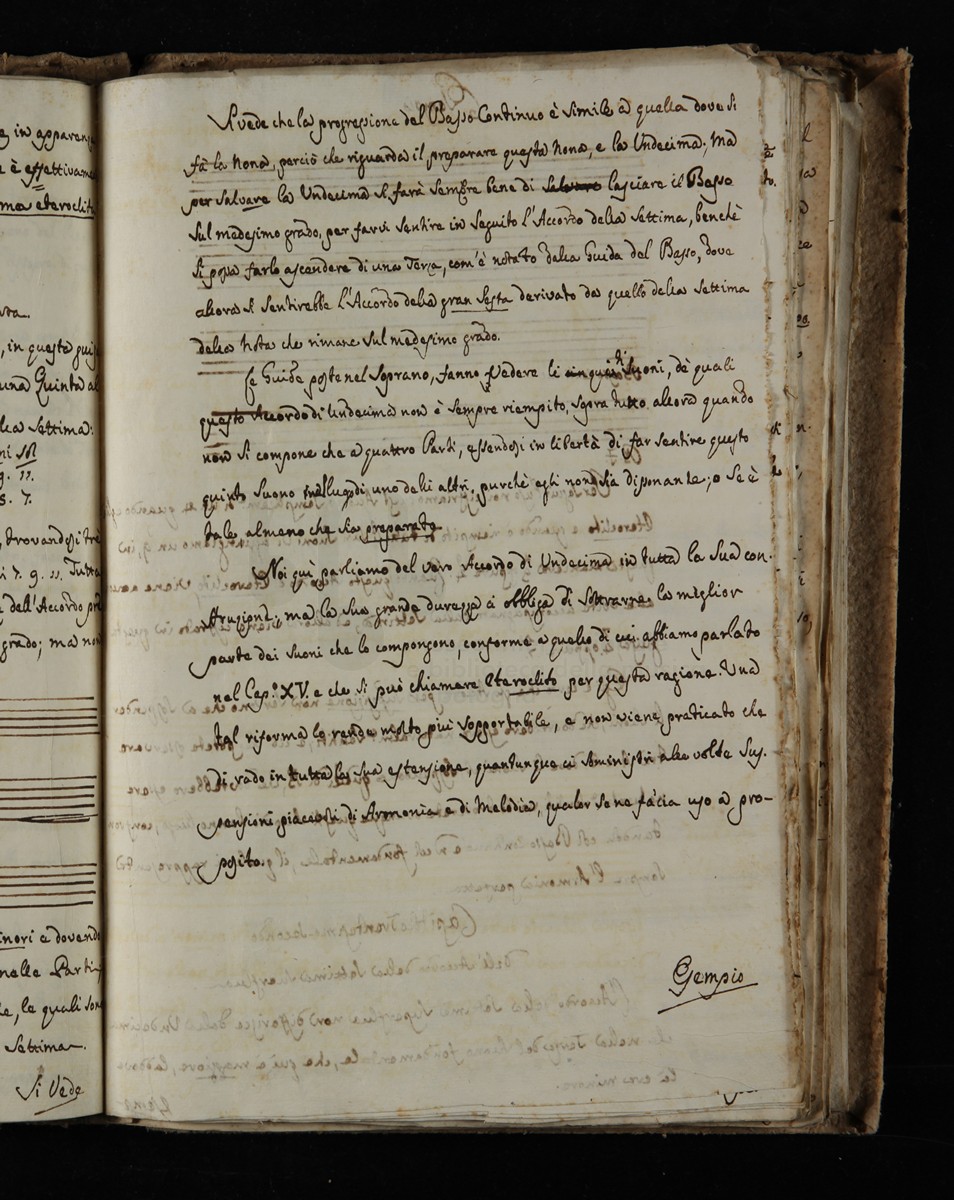 e in apparen
è effettivame
ma eteroclit
, in questa gui
una Quinta al
lla Settima:
ni sol
9. 11.
5. 7.
, trovandosi trè
i 7. 9. 11. Tutta
dell'Accordo pr
grado; ma non
inori e dovend
nelle Parti
le, le quali son
Settima.
Si Vede
Si vede che la progressione del Basso Continuo è simile a quella dove si
fà la Nona, perciò che riguarda il preparare questa Nona, e la Undecima; Ma
per salvare la Undecima si farà sempre bene di salvare lasciare il Basso
sul medesimo grado, per farvi sentire in seguito l'Accordo della Settima, benchè
si possa farlo ascendere di una Terza, com'è notato dalla Guida del Basso, dove
allora si sentirebbe l'Accordo della gran Sesta derivato da quello della Settima
della Nota che rimane sul medesimo grado.
Le Guide poste nel Soprano, fanno vedere li cinque suoni, de quali
questo Accordo di Undecima non è sempre riempito, sopra tutto allora quando
non si compone che a quattro Parti, essendosi in libertà di far sentire questo
quinto suono in luogo di uno delli altri, purchè egli non sia dissonante; o se è
tale almeno che sia preparato
Noi quì parliamo del vero Accordo di Undecima in tutta la sua con-
struzione; ma la sua grande durezza ci obbliga di sottrarne la miglior
parte dei suoni che lo compongono, conforme a quello di cui abbiamo parlato
nel Cap.º XV. e che si può chiamare Eteroclito per questa ragione. Una
tal riforma lo rende molto più sopportabile, e non viene praticato che
di rado in tutta la sua estensione, quantunque ci somministri alle volte Sus-
pensioni piacevoli di Armonia e di Melodia, qualor se ne faccia uso a pro-
posito.
Esempio